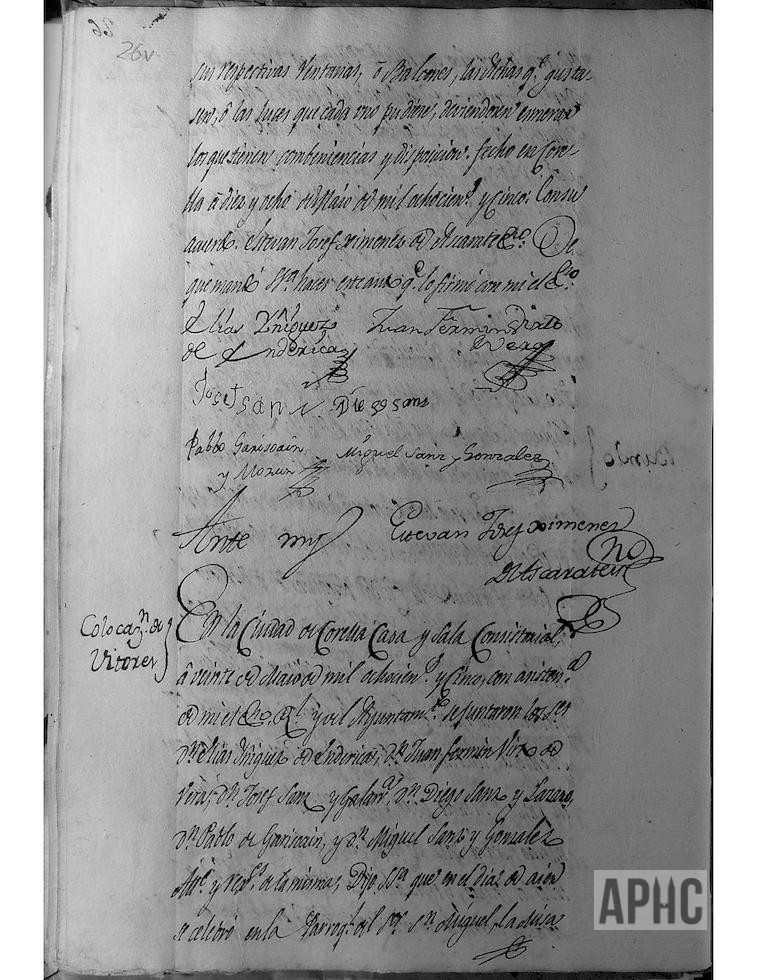 26v
sus respectivas Ventanas, ô Balcones, las Achas q.e gusta
sen, ô las luces que cada uno pudiere, deviendo ser
los que tienen combeniencias y disposicion. fecho en Core-
lla â diez y ocho de Maio de mil ochocien.s y Cinco. Con su
acuerdo. Estevan Josef Ximenez de Ascarate Es.no De
que mandó S.Sa hacer este auto q.e lo firmé con mi el Es.no
Elias Yñiguez Juan Fermin Virto
de Enderica de Vera
Josef Sanz Diego Sanz
Pablo Garisoain Miguel Sanz y Gonzalez
y Morun
Ante mi Estevan Josef Ximenez
de Ascarate Es.no
Colocaz.n de
Vitores
En la Ciudad de Corella Casa y Sala Consistorial,
â veinte de Maio de mil ochocien.s y Cinco, con asisten.a
de mi el Es.no R.l y del Ayuntam.to se juntaron los S.res
D.n Elias Yñiguez de Enderica, D.n Juan fermin Virto de
Vera, D.n Josef Sanz y D.n Diego Sanz y Lazaro,
D.n Pablo de Garisoain, y D.n Miguel Sanz y Gonzalez
Alc.e y reg.s de la misma, Dijo S.Sa que en el dia de aier
se celebró en la Parroq.l del S.or S.n Miguel, la Misa
APHC